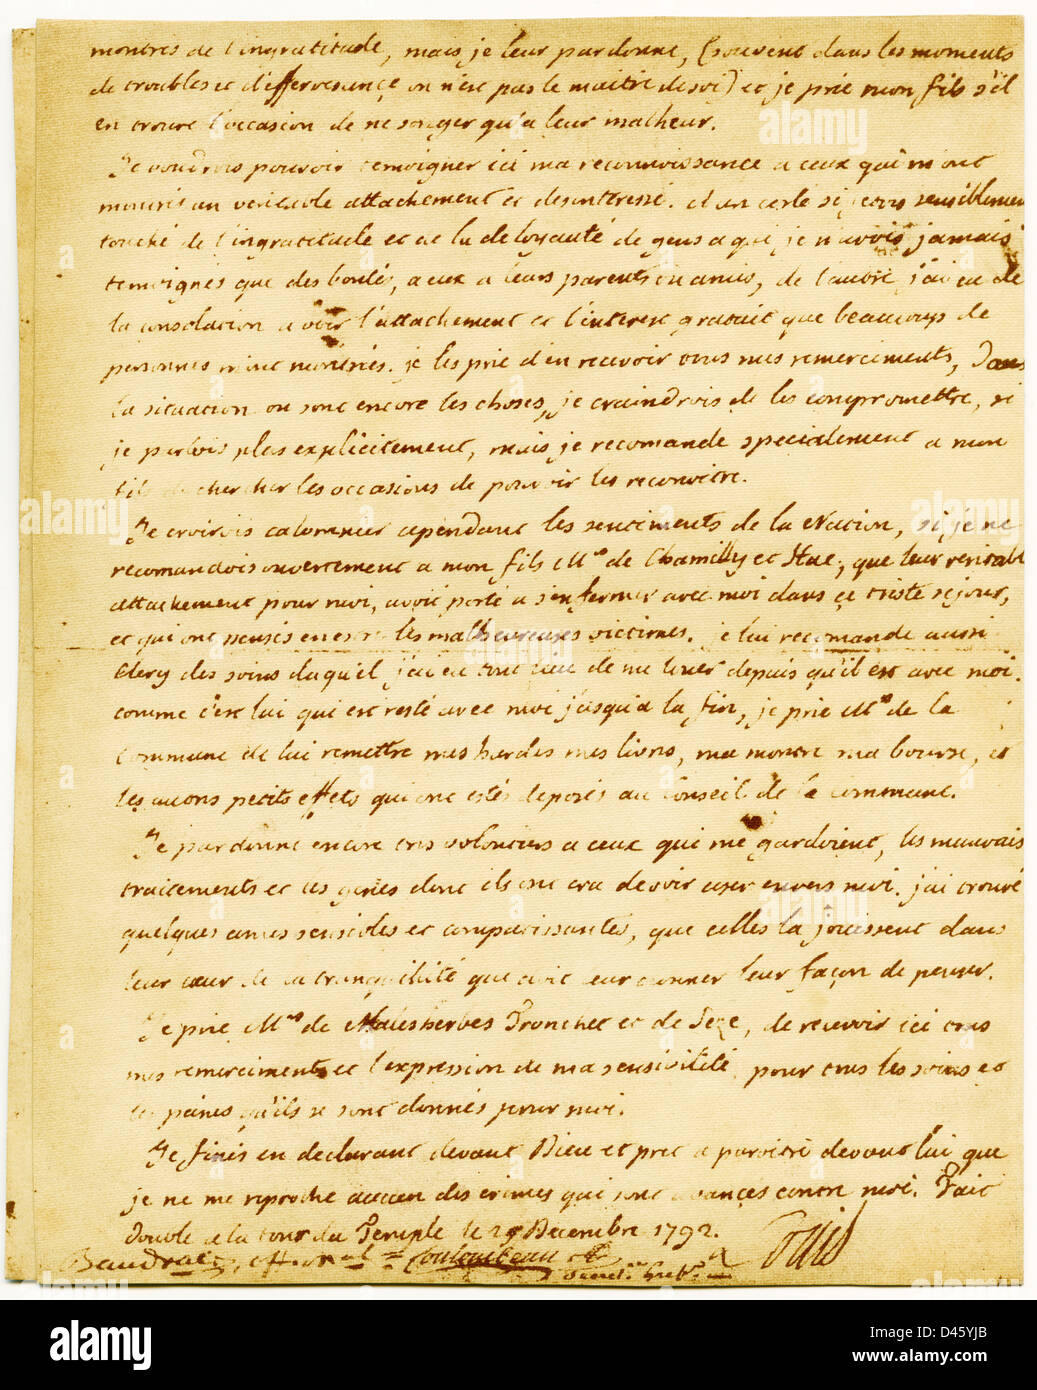 montrés de l'ingratitude, mais je leur pardonne, (souvent dans les moments
de troubles et d'effervescence on n'est pas le maitre de soi) et je prie mon fils s'il
en trouve l'occasion de ne songer qu'a leur malheur.
Je voudrois pouvoir temoigner ici ma reconnoissance a ceux qui m'ont
montrés un veritable attachement et desinteressé. d'un coté si j'etois sensiblement
touché de l'ingratitude et de la deloyauté de gens a qui je n'avois jamais
temoignés que des bontés, a eux a leurs parents ou amis, de l'autre j'ai eu de
la consolation a voir l'attachement et l'interest gratuit que beaucoup de
personnes m'ont montrés. je les prie d'en recevoir tous mes remerciments, Dans
la situation ou sont encore les choses, je craindrois de les compromettre, si
je parlois plus explicitement, mais je recomande specialement a mon
fils de chercher les occasions de pouvoir les reconoitre.
Je croirois calomnier cependant les sentiments de la Nation, si je ne
recomandois ouvertement a mon fils Mrs de Chamilly et Hue, que leur veritable
attachement pour moi, avoit porté a s'enfermer avec moi dans ce triste sejour,
et qui ont pensés en estre les malheureuses victimes. je lui recomande aussi
Clery des soins duquel j'ai eu tout lieu de me louer depuis qu'il est avec moi.
comme c'est lui qui est resté avec moi jusqu'a la fin, je prie Mrs de la
Commune de lui remettre mes hardes mes livres, ma montre ma bourse, et
les autres petits effets qui ont estés deposés au Conseil de la commune.
Je pardonne encore tres volontiers a ceux qui me gardoient, les mauvais
traitements et les gesnes dont ils ont cru devoir user envers moi. j'ai trouvé
quelques ames sensibles et compatissantes, que celles la jouissent dans
leur cœur de la tranquilité que doit leur donner leur façon de penser.
Je prie Mrs de Malesherbes Tronchet et de Seze, de recevoir ici tous
mes remerciments et l'expression de ma sensibilité, pour tous les soins et
les peines qu'ils se sont donnés pour moi.
Je finis en declarant devant Dieu et pret a paroitre devant lui que
je ne me reproche aucun des crimes qui sont avancés contre moi. Fait
Double a la tour du Temple le 25 Decembre 1792.
Louis
Baudrais, off. mal
Coulombeau
alamy
Image ID: D45YJB
www.alamy.com